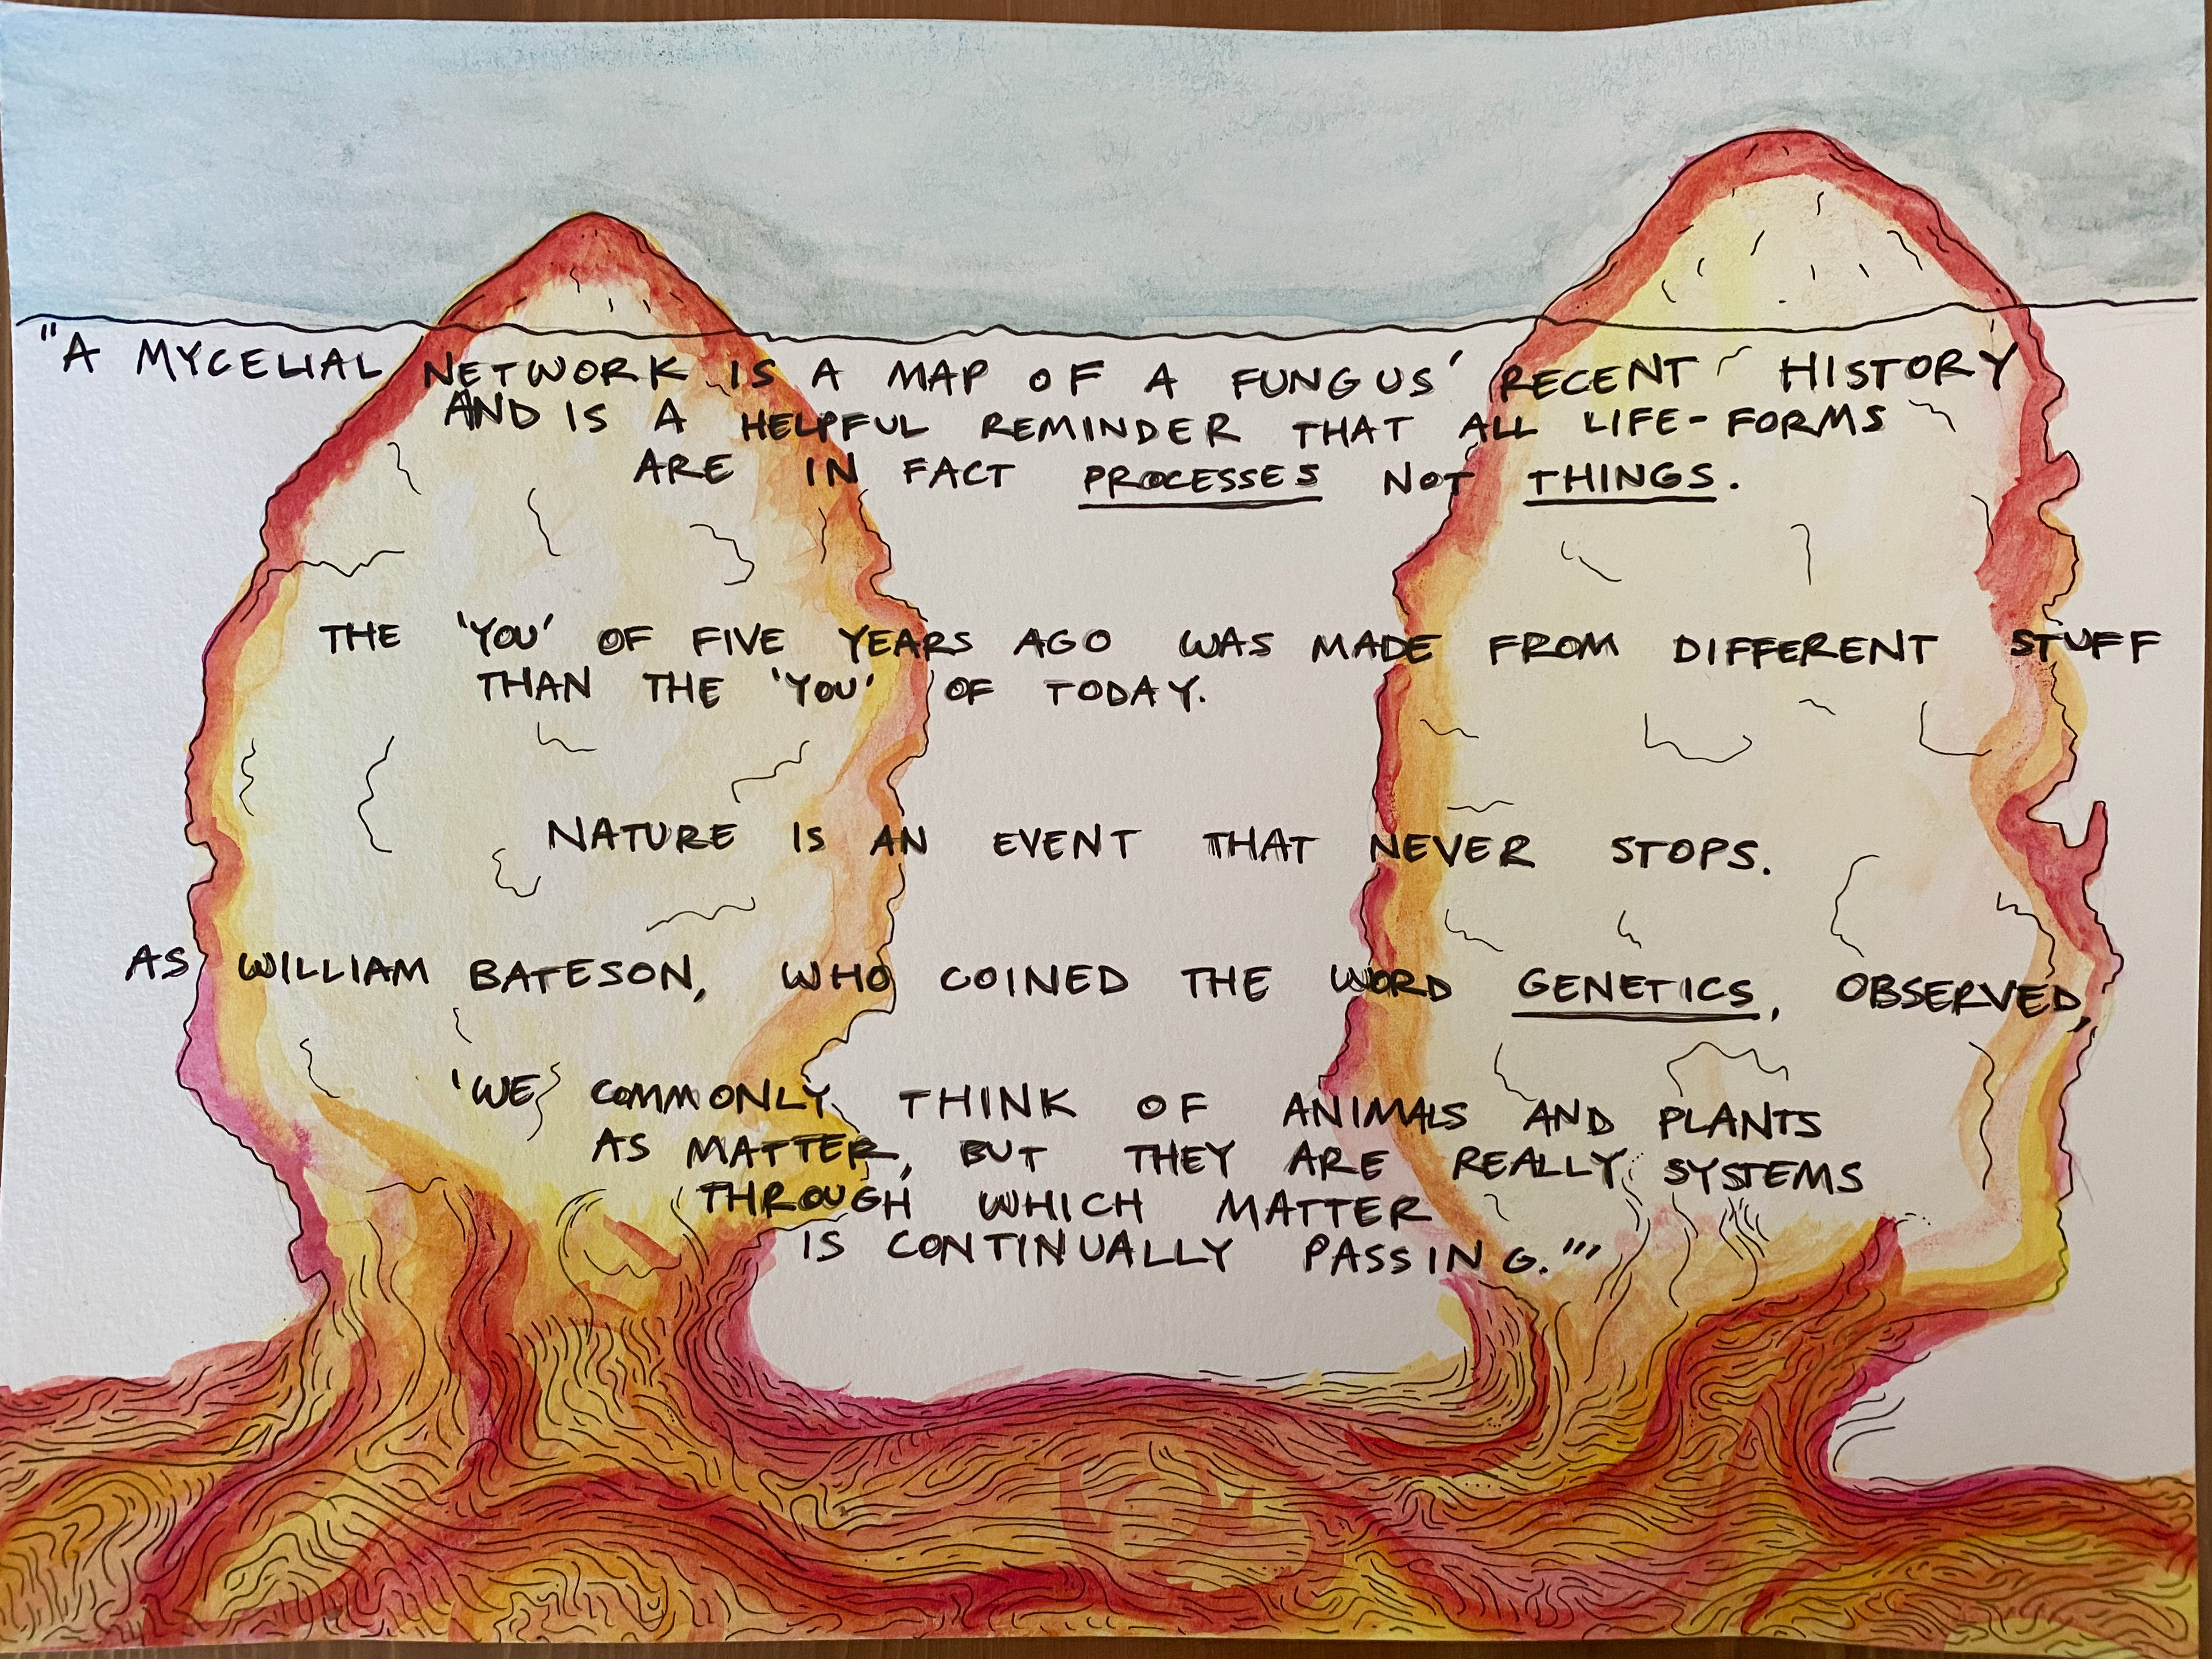 "A MYCELIAL NETWORK IS A MAP OF A FUNGUS' RECENT HISTORY
AND IS A HELPFUL REMINDER THAT ALL LIFE-FORMS
ARE IN FACT PROCESSES NOT THINGS.
THE 'YOU' OF FIVE YEARS AGO WAS MADE FROM DIFFERENT STUFF
THAN THE 'YOU' OF TODAY.
NATURE IS AN EVENT THAT NEVER STOPS.
AS WILLIAM BATESON, WHO COINED THE WORD GENETICS, OBSERVED,
'WE COMMONLY THINK OF ANIMALS AND PLANTS
AS MATTER, BUT THEY ARE REALLY SYSTEMS
THROUGH WHICH MATTER
IS CONTINUALLY PASSING.'"